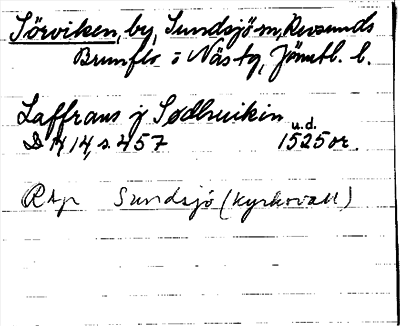 Sörviken, by, Sundsjö sn, Revsunds
Brunflo o Näs tg, Jämtl. l.
Laffrans j Sødhruikin
u.d.
D 14 14, s. 457 1525 or.
Rtp Sundsjö (kyrkovall)